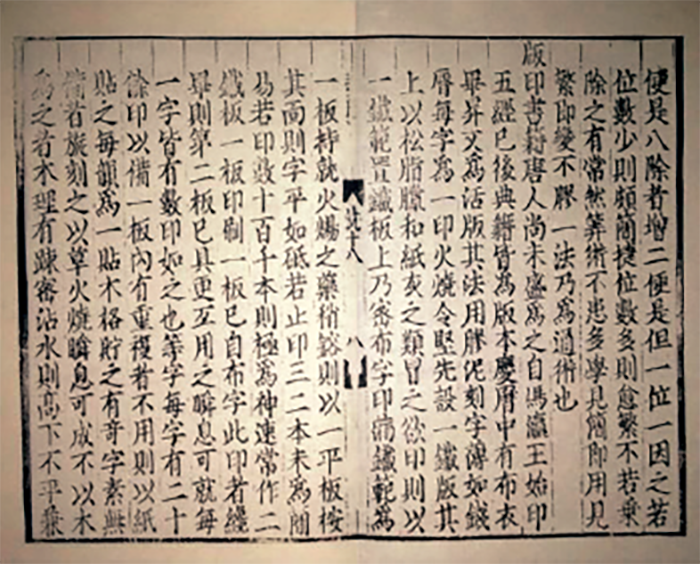 便是八除者增二便是但一位一因之若
位數少則頗簡捷位數多則愈繁不若乗
除之有常然筭術不患多學見簡即用見
繁即變不膠一法乃為通術也
版印書籍唐人尚未盛為之自馮瀛王始印
五經已後典籍皆為版本慶曆中有布衣
畢昇又為活版其法用膠泥刻字薄如錢
脣每字為一印火燒令堅先設一鐵版其
上以松脂臘和紙灰之類冒之欲印則以
一鐵範置鐵板上乃密布字印滿鐵範為
十八
八
一板持就火煬之藥稍鎔則以一平板按
其面則字平如砥若止印三二本未為簡
易若印數十百千本則極為神速常作二
鐵板一板印刷一板已自布字此印者纔
畢則第二板已具更互用之瞬息可就每
一字皆有數印如之也等字每字有二十
餘印以備一板內有重複者不用則以紙
貼之每韻為一貼木格貯之有奇字素無
備者旋刻之以草火燒瞬息可成不以木
為之者木理有踈密沾水則高下不平兼